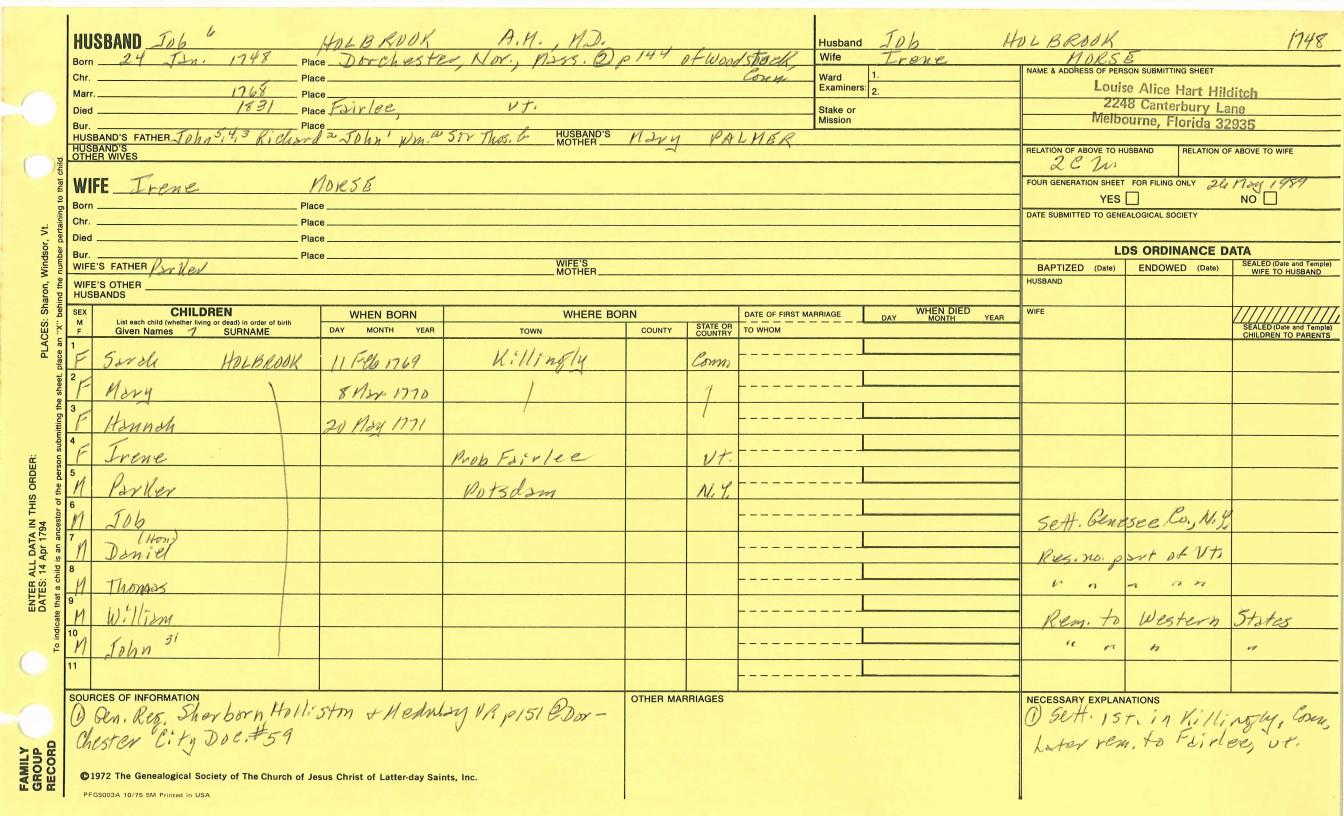 HUSBAND Job 6 HOLBROOK A.M., M.D.
Born 24 Jan. 1748 Place Dorchester, Nor., Mass. ② p 144 of Woodstock, Conn
Chr. Place
Marr. 1768 Place
Died 1831 Place Fairlee, Vt.
Bur. Place
HUSBAND'S FATHER John 5,4,3 Richard 2 John 1 Wm. a Sir Thos. b HUSBAND'S MOTHER Mary PALMER
HUSBAND'S OTHER WIVES
Husband Job HOLBROOK 1748
Wife Irene MORSE
Ward Examiners: 1.
2.
Stake or Mission
NAME & ADDRESS OF PERSON SUBMITTING SHEET
Louise Alice Hart Hilditch
2248 Canterbury Lane
Melbourne, Florida 32935
RELATION OF ABOVE TO HUSBAND RELATION OF ABOVE TO WIFE
2C
FOUR GENERATION SHEET FOR FILING ONLY 26 May 1989
YES NO
DATE SUBMITTED TO GENEALOGICAL SOCIETY
WIFE Irene MORSE
Born Place
Chr. Place
Died Place
Bur. Place
WIFE'S FATHER Parker WIFE'S MOTHER
WIFE'S OTHER HUSBANDS
LDS ORDINANCE DATA
BAPTIZED (Date) ENDOWED (Date) SEALED (Date and Temple) WIFE TO HUSBAND
HUSBAND
WIFE
SEALED (Date and Temple) CHILDREN TO PARENTS
SEX M F CHILDREN WHEN BORN WHERE BORN DATE OF FIRST MARRIAGE WHEN DIED
List each child (whether living or dead) in order of birth
Given Names 7 SURNAME DAY MONTH YEAR TOWN COUNTY STATE OR COUNTRY TO WHOM DAY MONTH YEAR
1 F Sarah HOLBROOK 11 Feb 1769 Killingly Conn
2 F Mary 8 Mar. 1770
3 F Hannah 20 May 1771
4 F Irene Prob Fairlee Vt.
5 M Parker Potsdam N.Y.
6 M Job Sett. Genesee Co., N.Y.
7 M Daniel (Hon) Res. no. part of Vt.
8 M Thomas " " " " "
9 M William Rem. to Western States
10 M John " " " "
11
SOURCES OF INFORMATION
① Gen. Reg. Sherborn, Holliston + Medway VR p151 ② Dor-
chester City Doc. #59
OTHER MARRIAGES
NECESSARY EXPLANATIONS
① Sett. 1st. in Killingly, Conn,
Later rem. to Fairlee, Vt.
©1972 The Genealogical Society of The Church of Jesus Christ of Latter-day Saints, Inc.
PFGS003A 10/75 5M Printed in USA
FAMILY GROUP RECORD
ENTER ALL DATA IN THIS ORDER:
DATES: 14 Apr 1794
PLACES: Sharon, Windsor, Vt.
To indicate that a child is an ancestor of the person submitting the sheet, place an "X" behind the number pertaining to that child.